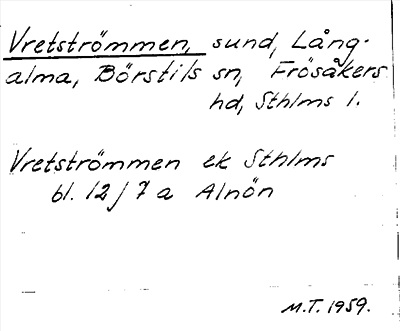 Vretströmmen, sund, Lång-
alma, Börstils sn, Frösåkers
hd, Sthlms l.
Vretströmmen ek Sthlms
bl. 12 j 7 a Alnön
M.T. 1959.